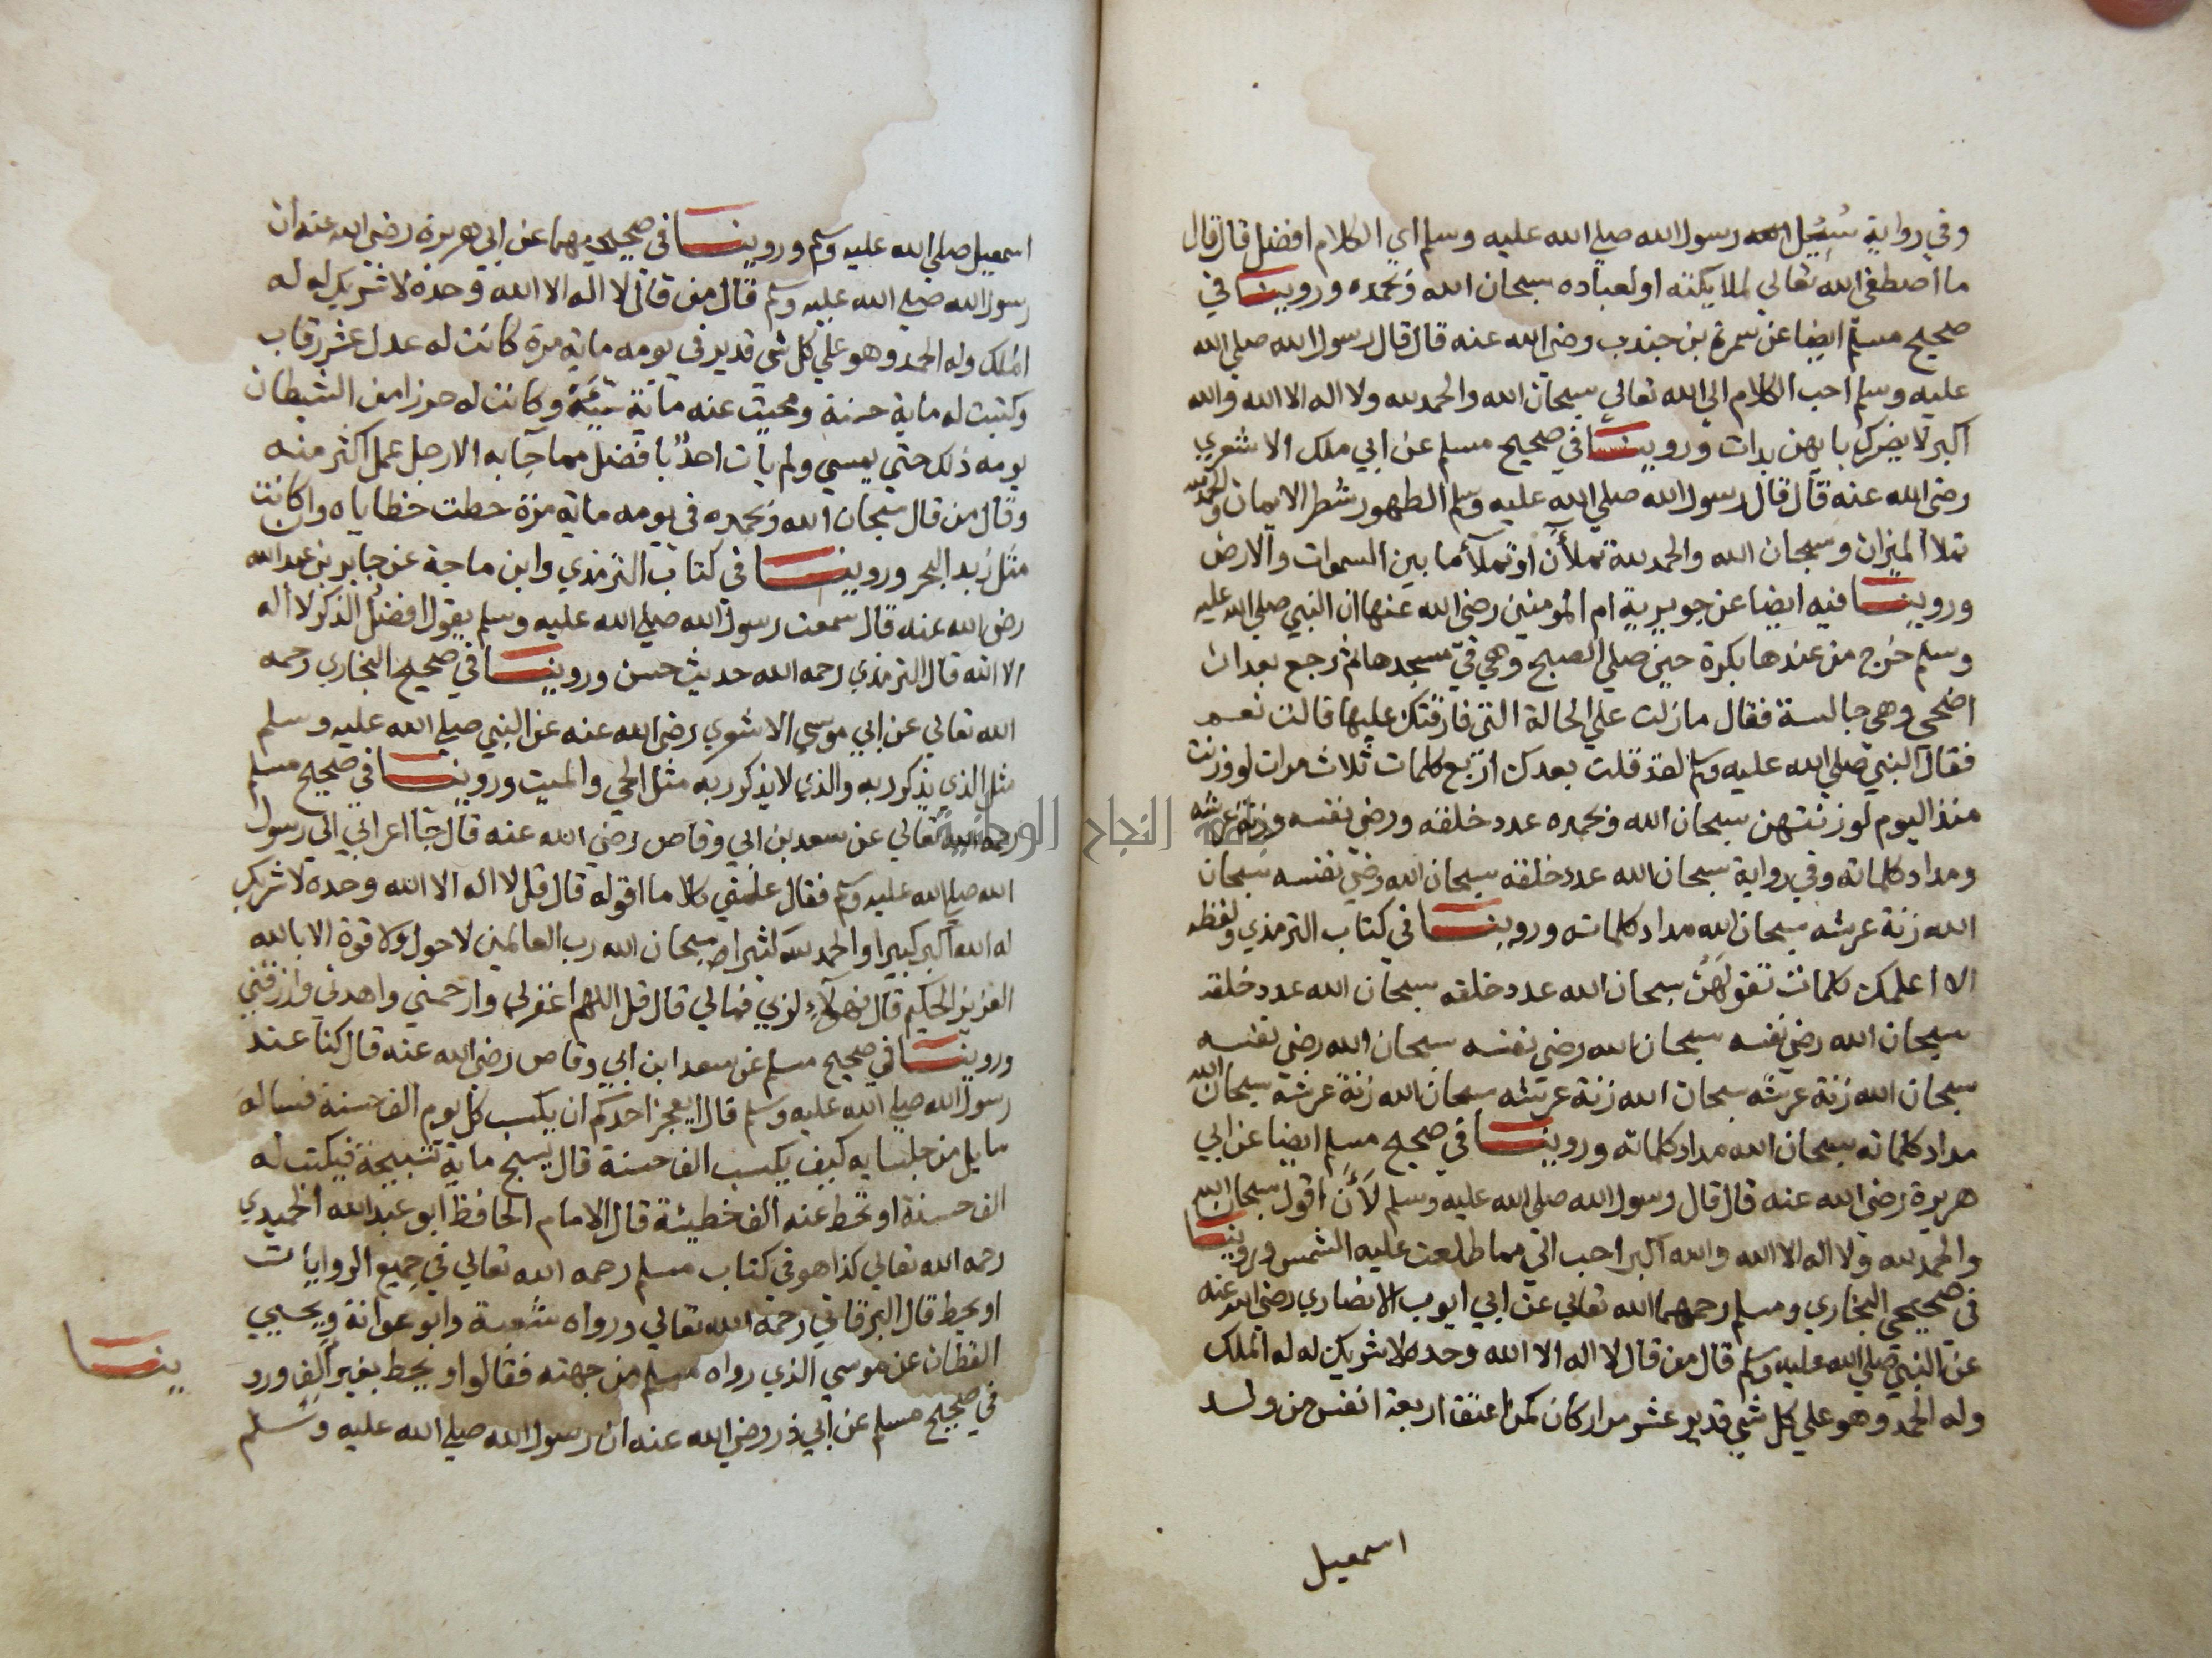 وفي رواية سُئِل رسول الله صلي الله عليه وسلم اي الكلام افضل قال قال
ما اصطفي الله تعالي لملايكته او لعباده سبحان الله وبحمده وروينا في
صحيح مسلم ايضا عن سمرة بن جندب رضي الله عنه قال قال رسول الله صلي الله
عليه وسلم احب الكلام الي الله تعالي سبحان الله والحمد لله ولا اله الا الله والله
اكبر لا يضرك بايهن بدات وروينا في صحيح مسلم عن ابي ملك الاشعري
رضي الله عنه قال قال رسول الله صلي الله عليه وسلم الطهور شطر الايمان والحمد لله
تملا الميزان وسبحان الله والحمد لله تملآن او تملأ ما بين السموات والارض
وروينا فيه ايضا عن جويرية ام المومنين رضي الله عنها ان النبي صلي الله عليه
وسلم خرج من عندها بكرة حين صلي الصبح وهي في مسجدها ثم رجع بعد ان
اضحي وهي جالسة فقال ما زلت علي الحالة التي فارقتك عليها قالت نعم
فقال النبي صلي الله عليه وسلم لقد قلت بعدك اربع كلمات ثلاث مرات لو وزنت
منذ اليوم لوزنتهن سبحان الله وبحمده عدد خلقه ورضي نفسه وزنة عرشه
ومداد كلماته وفي رواية سبحان الله عدد خلقه سبحان الله رضي نفسه سبحان
الله زنة عرشه سبحان الله مداد كلماته وروينا في كتاب الترمذي ولفظه
الا اعلمك كلمات تقولهن سبحان الله عدد خلقه سبحان الله عدد خلقه
سبحان الله رضي نفسه سبحان الله رضي نفسه سبحان الله رضي نفسه
سبحان الله زنة عرشه سبحان الله زنة عرشه سبحان الله زنة عرشه سبحان الله
مداد كلماته سبحان الله مداد كلماته وروينا في صحيح مسلم ايضا عن ابي
هريرة رضي الله عنه قال قال رسول الله صلي الله عليه وسلم لأن اقول سبحان الله
والحمد لله ولا اله الا الله والله اكبر احب الي مما طلعت عليه الشمس وروينا
في صحيحي البخاري ومسلم رحمهما الله تعالي عن ابي ايوب الانصاري رضي الله عنه
عن النبي صلي الله عليه وسلم قال من قال لا اله الا الله وحده لا شريك له له الملك
وله الحمد وهو علي كل شي قدير عشر مرار كان كمن اعتق اربعة انفس من ولد
اسمعيل
اسمعيل صلي الله عليه وسلم وروينا في صحيحيهما عن ابي هريرة رضي الله عنه ان
رسول الله صلي الله عليه وسلم قال من قال لا اله الا الله وحده لا شريك له له
الملك وله الحمد وهو علي كل شي قدير في يومه ماية مرة كانت له عدل عشر رقاب
وكتبت له ماية حسنة ومحيت عنه ماية سيئة وكانت له حرزا من الشيطان
يومه ذلك حتي يمسي ولم يات احدٌ بافضل مما جآ به الا رجل عمل اكثر منه
وقال من قال سبحان الله وبحمده في يومه ماية مرة حطت خطاياه وان كانت
مثل زبد البحر وروينا في كتاب الترمذي وابن ماجة عن جابر بن عبد الله
رضي الله عنه قال سمعت رسول الله صلي الله عليه وسلم يقول افضل الذكر لا اله
الا الله قال الترمذي رحمه الله حديث حسن وروينا في صحيح البخاري رحمه
الله تعالي عن ابي موسي الاشعري رضي الله عنه عن النبي صلي الله عليه وسلم
مثل الذي يذكر ربه والذي لا يذكر ربه مثل الحي والميت وروينا في صحيح مسلم
رحمه الله تعالي عن سعد بن ابي وقاص رضي الله عنه قال جآ اعرابي الي رسول
الله صلي الله عليه وسلم فقال علمني كلاما اقوله قال قل لا اله الا الله وحده لا شريك
له الله اكبر كبيرا والحمد لله كثيرا وسبحان الله رب العالمين لا حول ولا قوة الا بالله
العزيز الحكيم قال فهولآء لربي فما لي قال قل اللهم اغفر لي وارحمني واهدني وارزقني
وروينا في صحيح مسلم عن سعد ابن ابي وقاص رضي الله عنه قال كنا عند
رسول الله صلي الله عليه وسلم قال ايعجز احدكم ان يكسب كل يوم الف حسنة فساله
سايل من جلسايه كيف يكسب الف حسنة قال يسبح ماية تسبيحة فيكتب له
الف حسنة او تحط عنه الف خطيئة قال الامام الحافظ ابو عبد الله الحميدي
رحمه الله تعالي كذا هو في كتاب مسلم رحمه الله تعالي في جميع الروايات
او يحط قال البرقاني رحمه الله تعالي ورواه شعبة وابو عوانة ويحيي
القطان عن موسي الذي رواه مسلم من جهته فقالوا ويحط بغير الف ورو
ينا
في صحيح مسلم عن ابي ذر رضي الله عنه ان رسول الله صلي الله عليه وسلم